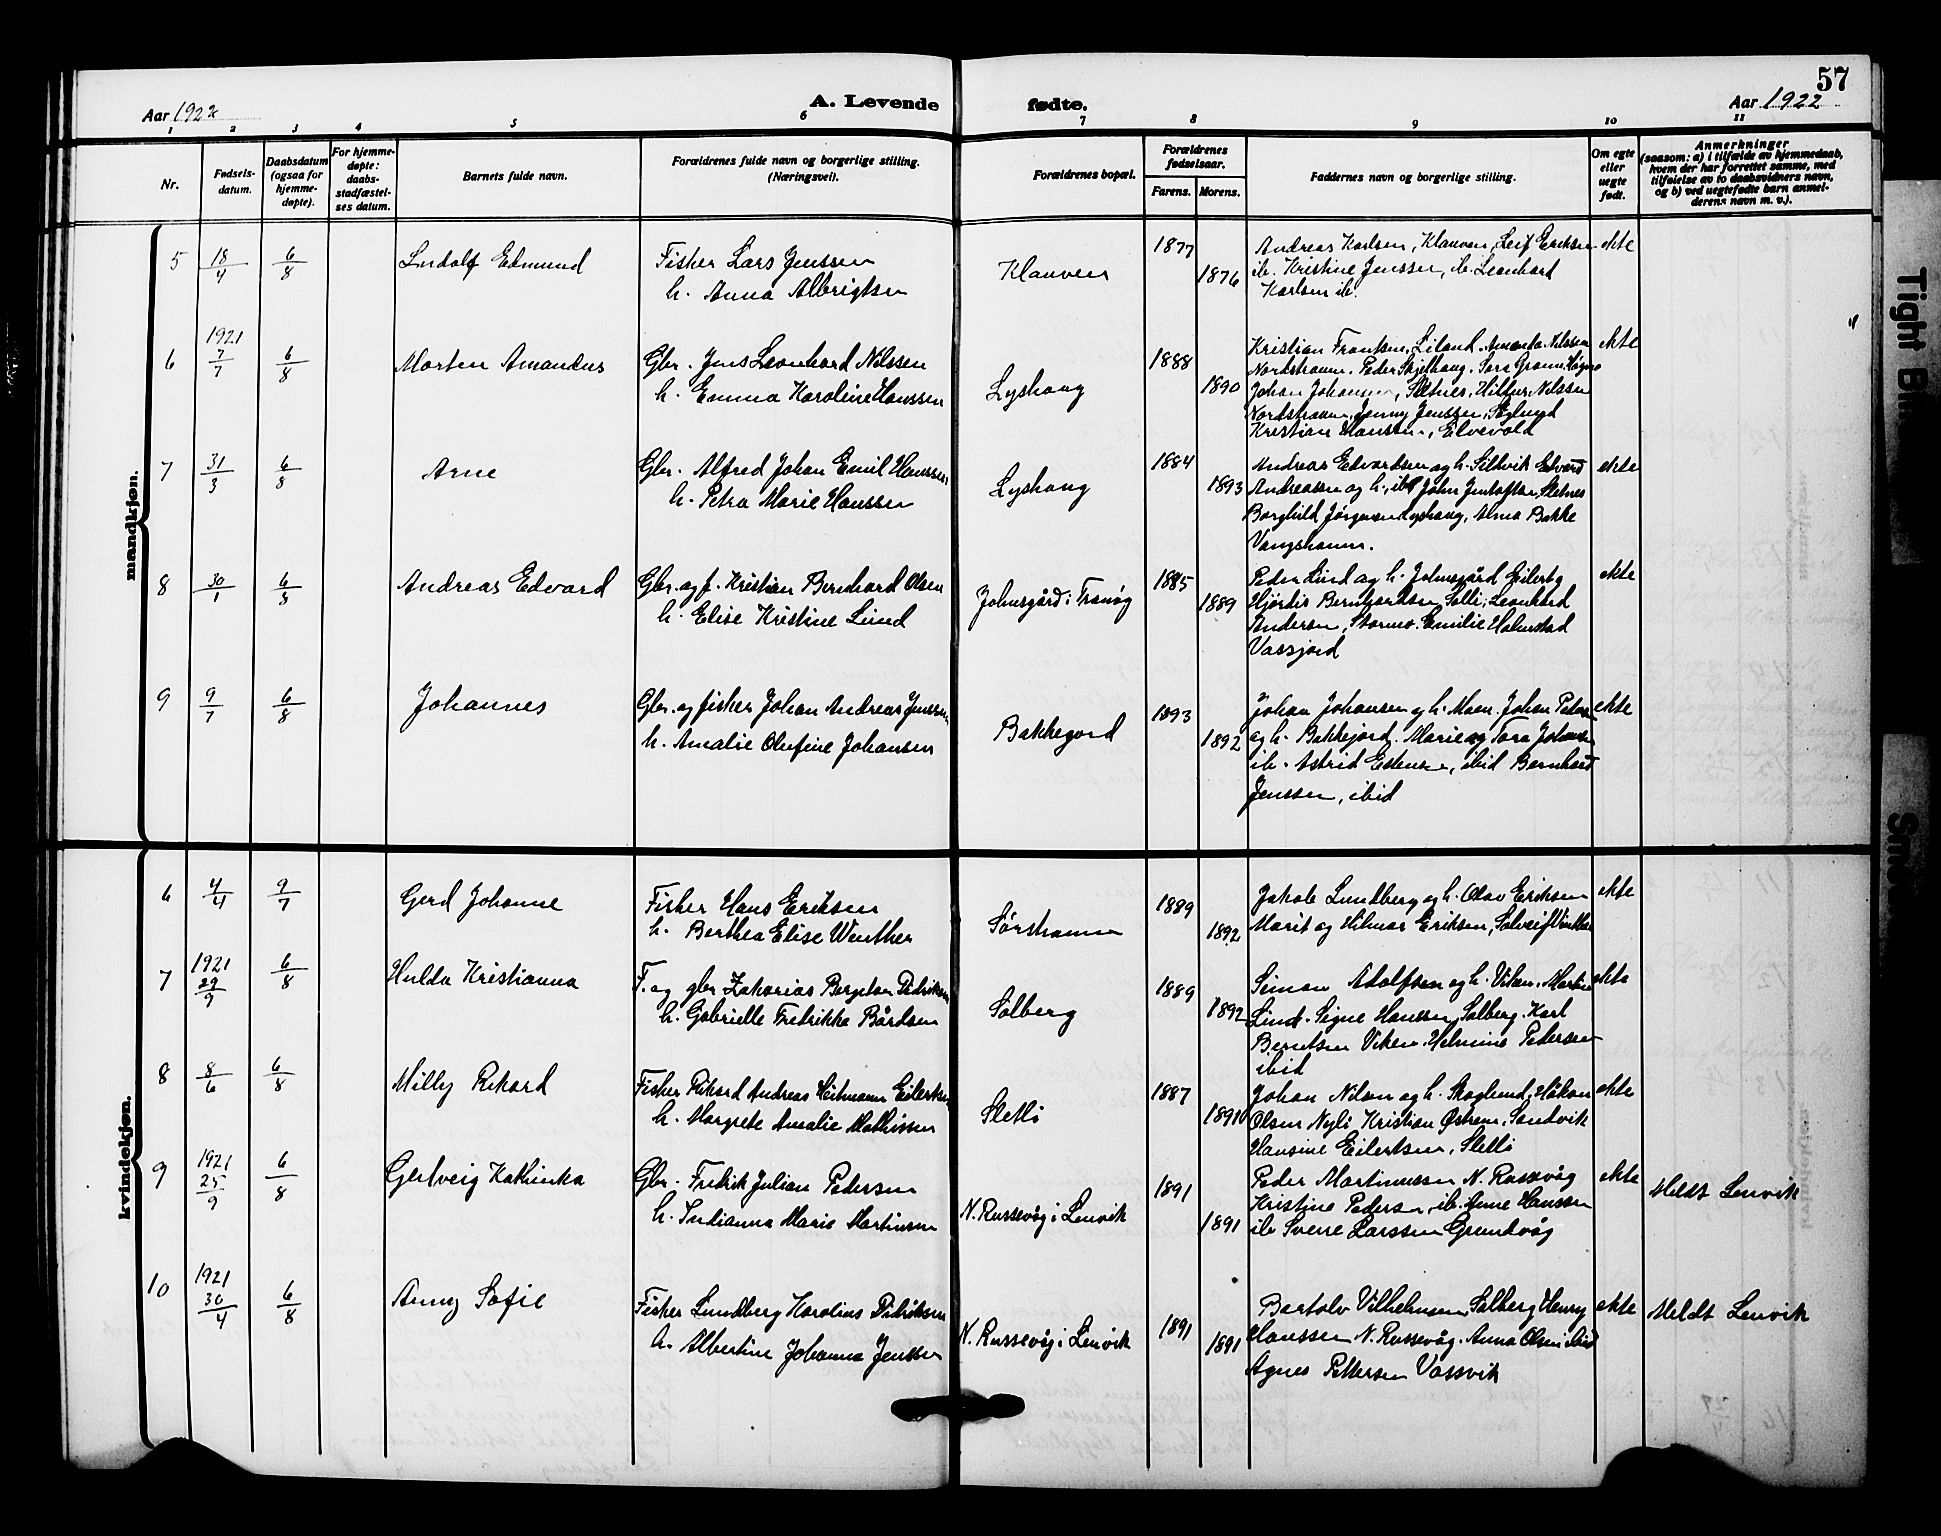 57
Aar 1922
A. Levende fødte.
Aar 1922
1 2 3 4 5 6 7 8 9 10 11
Nr.
Fødsels-
datum.
Daabsdatum
(ogsaa for
hjemme-
døpte).
For hjemme-
døpte:
daabs-
stadfæstel-
ses datum.
Barnets fulde navn.
Forældrenes fulde navn og borgerlige stilling.
(Næringsvei).
Forældrenes bopæl.
Forældrenes
fødselsaar.
Farens. Morens.
Faddernes navn og borgerlige stilling.
Om egte
eller
uegte
født.
Anmerkninger
(saasom: a) i tilfælde av hjemmedaab,
hvem der har forrettet samme, med
tilføielse av to daabsvidners navn,
og b) ved uegtefødte barn anmel-
derens navn m. v.).
mandkjøn.
5 18/4 6/8 Ludolf Edmund
Fisker Lars Jenssen
h. Anna Albrigtsen
Klauven 1877 1876
Andreas Karlsen, Klauven, Leif Eriksen
ib. Kristine Jenssen, ib. Leonhard
Karlsen ib.
ekte
6 1921 7/7 6/8 Morten Amandus
Gbr. Jens Leonhard Nilssen
h. Emma Karoline Hanssen
Lyshaug 1888 1890
Kristian Frantsen, Liland. Amanda Nilssen
Nordstraum. Peder Skjelhaug. Sara
Johan Johansen, Sletnes, Nilssen
Nordstraum, Jenny Jenssen,
Kristian Hanssen, Elvevold
ekte
7 31/3 6/8 Arne
Gbr. Alfred Johan Emil Hanssen
h. Petra Marie Hanssen
Lyshaug 1884 1893
Andreas Edvardsen og h. Edvard
Andreassen og h., ib. John Sletnes
Borghild Jørgensen Lyshaug, Alma Bakke
Vangshamn.
ekte
8 30/1 6/8 Andreas Edvard
Gbr. og f. Kristian Bernhard Olsen
h. Elise Kristine Lund
Johnsgård i Tranøy 1885 1889
Peder Lund og h. Johnsgård
Hjørdis Berntsen Solli, Leonhard
Andersen, Stormo. Emilie Holmstad
Vassjord
ekte
9 9/7 6/8 Johannes
Gbr. og fisker Johan Andreas Jenssen
h. Amalie Olufine Johansen
Bakkejord 1893 1892
Johan Johansen og h. Moen. Johan Peder
og h. Bakkejord. Marie og Tora Johansen
ib. Astrid Estensen, ibid Bernhard
Jenssen, ibid
ekte
kvindekjøn.
6 4/4 9/7 Gerd Johanne
Fisker Hans Eriksen
h. Berthea Elise Wenther
Sørshamn 1889 1892
Jakob Lundberg og h. Olav Eriksen
Marit og Hilmar Eriksen, Solveig
ekte
7 1921 29/9 6/8 Hulda Kristianna
F. og gbr Zakarias Bergeton Pedriksen
h. Gabrielle Fredrikke Bårdsen
Solberg 1889 1892
Simon Adolfsen og h. Viken. Martin
Lind. Signe Hanssen, Solberg. Karl
Berntsen Viken. Helmine Pedersen
ibid
ekte
8 8/6 6/8 Milly Rikard
Fisker Rikard Andreas Heitmann Eilertsen
h. Margrete Amalie Mathissen
Sletli 1887 1891
Johan Nilsen og h. Skoglund, Håkon
Olsen Nyli Kristian Østrem, Sandvik
Hansine Eilertsen, Sletli
ekte
9 1921 25/9 6/8 Gjertveig Kathinka
Gbr. Fredrik Julian Pedersen
h. Indianna Marie Martinsen
N. Russevåg i Lenvik 1891 1891
Peder Martinussen N. Russevåg
Kristine Pedersen, ib. Anne Hanssen
ib Sverre Larssen Grundvåg
ekte
Meldt Lenvik
10 1921 30/4 6/8 Anny Sofie
Fisker Lundberg Karolius Didriksen
h. Albertine Johanna Jenssen
N. Russevåg i Lenvik 1891 1891
Bertolv Vilhelmsen, Solberg Henry
Hanssen N. Russevåg. Anna Olsen ibid
Agnes Pettersen Vassvik
ekte
Meldt Lenvik
Tight Bi